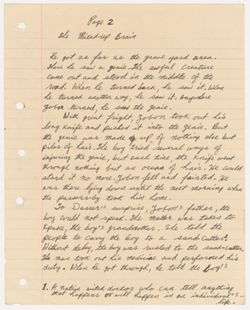 Page 2
The Mixed-up Brain
He got as far as the grave yard area.
Here he saw a genie. The awful creature
came out and stood in the middle of the
road. When he turned back, he saw it. When
he turned another way, he saw it. Anywhere
Gobon turned, he saw the genie.
With great fright Gobon took out his
long knife and pushed it into the genie. But
the genie was made up of nothing else but
piles of hair. The boy tried several ways of
injuring the genie, but each time the knife went
through nothing but an ocean of hair. He could
stand it no more. Gobon fell and fainted. He
was there lying down until the next morning when
the passersby took him home.
To Dassar's surprise, Gobon's father, the
boy could not speak. The matter was taken to
the boy's grandmother. She told the
people to carry the boy to a sand-cutter.¹
Without delay, the boy was rushed to the sand-cutter.
The man took out his medicine and performed his
duty. When he got through, he told the boy's
1. A native witchdoctor who can tell anything
that happens or will happen in an individual's
life.